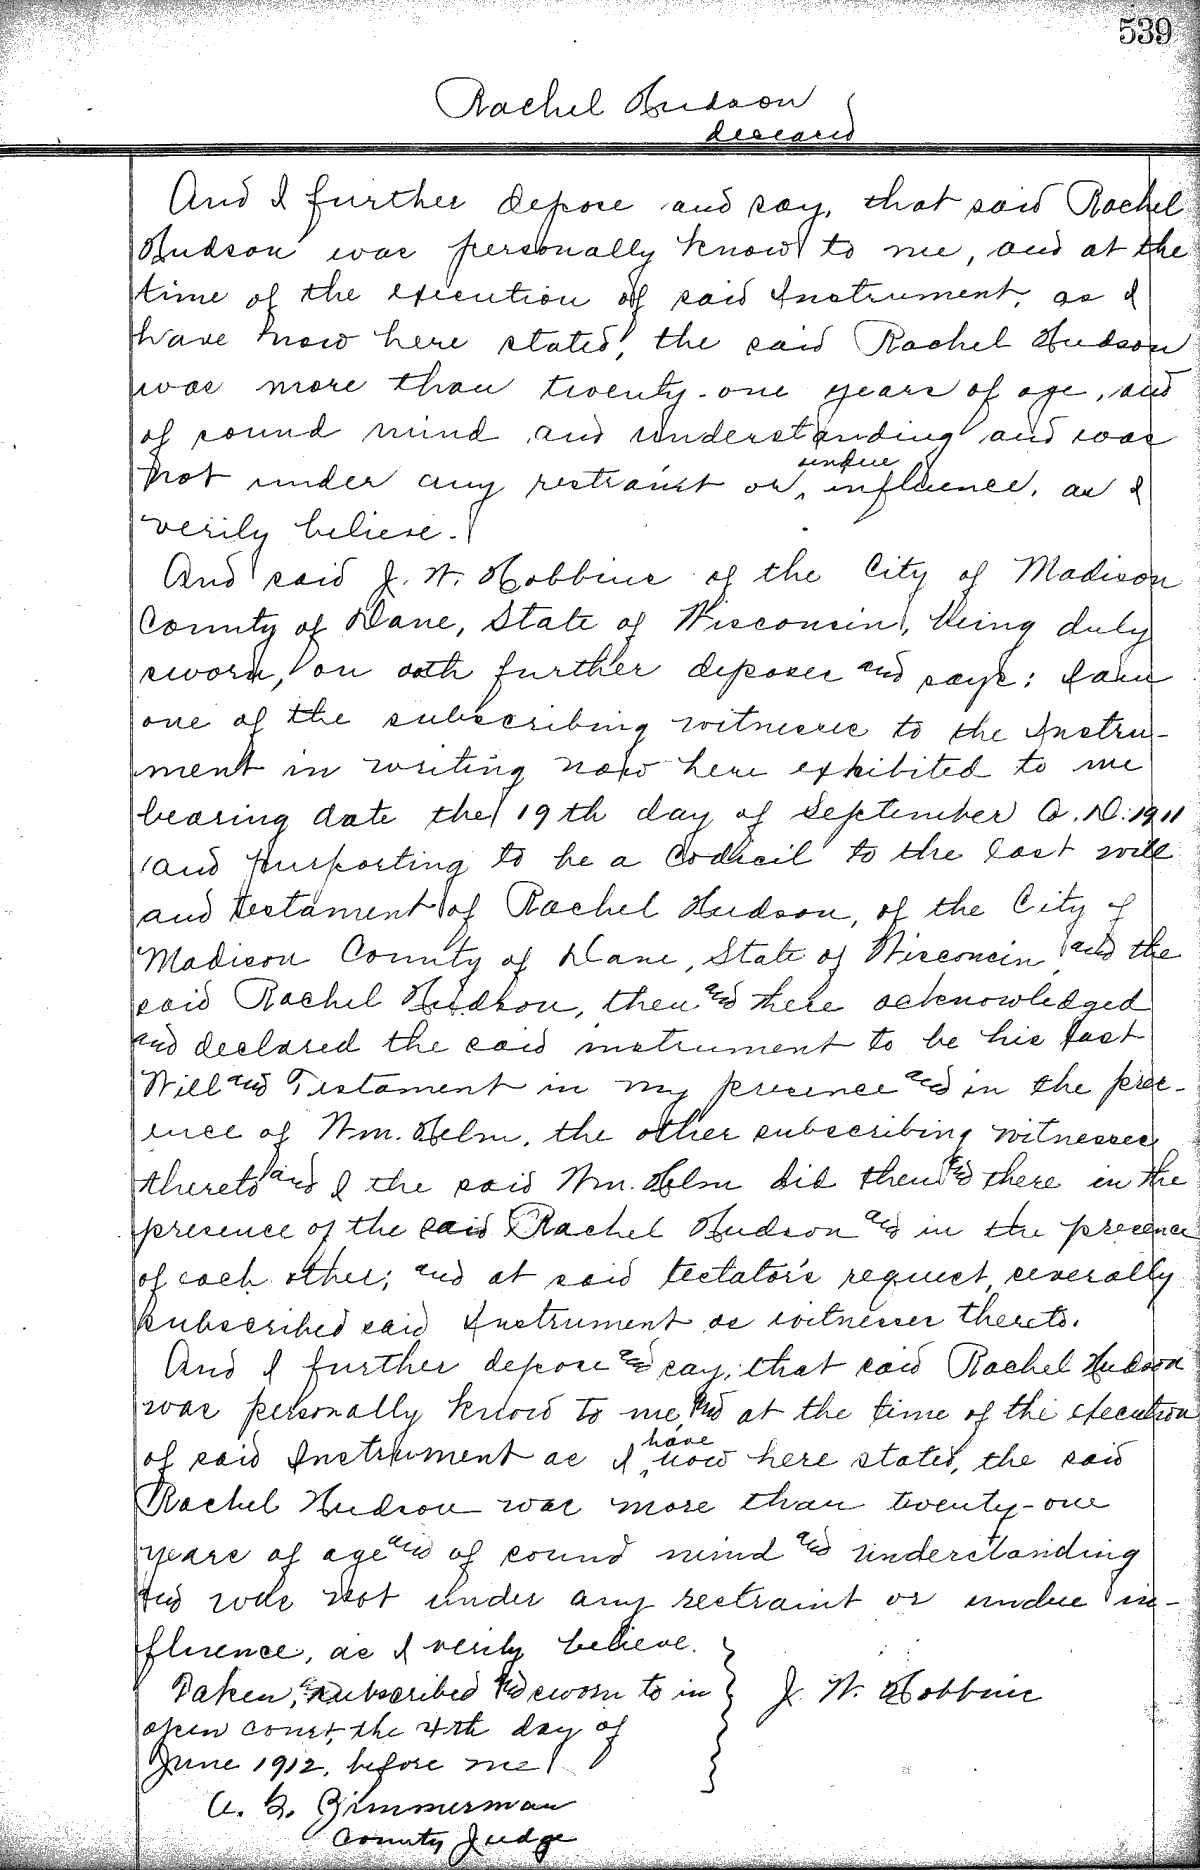 539
Rachel Hudson
deceased
And I further depose and say, that said Rachel
Hudson was personally know to me, and at the
time of the execution of said Instrument, as I
have now here stated, the said Rachel Hudson
was more than twenty-one years of age, and
of sound mind and understanding and was
not under any restraint or undue influence, as I
verily believe.
And said J. W. Hobbins of the City of Madison
County of Dane, State of Wisconsin, being duly
sworn, on oath further deposes and says: I am
one of the subscribing witnesses to the Instru-
ment in writing now here exhibited to me
bearing date the 19th day of September A.D. 1911
and purporting to be a Codicil to the last will
and testament of Rachel Hudson, of the City of
Madison County of Dane, State of Wisconsin, and the
said Rachel Hudson, then and there acknowledged
and declared the said instrument to be his last
Will and Testament in my presence and in the pres-
ence of Wm. Helm, the other subscribing witnesses
thereto and I the said Wm. Helm did then and there in the
presence of the said Rachel Hudson and in the presence
of each other; and at said testator's request, severally
subscribed said Instrument as witnesses thereto.
And I further depose and say, that said Rachel Hudson
was personally know to me, and at the time of the execution
of said Instrument as I have now here stated, the said
Rachel Hudson was more than twenty-one
years of age and of sound mind and understanding
and was not under any restraint or undue in-
fluence, as I verily believe.
Taken, subscribed and sworn to in
J. W. Hobbins
open court, the 4th day of
June 1912, before me
A. G. Zimmerman
County Judge